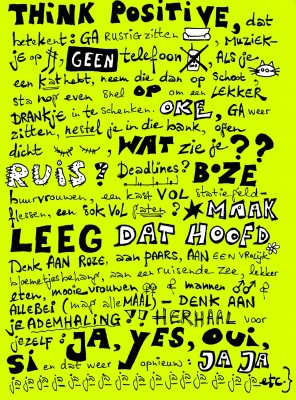 THINK POSITIVE, dat
betekent: GA RUSTIG zitten, MUZIEK-
je op, GEEN telefoon, ALS je
een kat hebt, neem die dan op schoot
sta nog even snel OP om een LEKKER
DRANKje in te schenken. OKE, GA weer
zitten, nestel je in die bank, ogen
dicht, WAT zie je??
RUIS? Deadlines? BOZE
buurvrouwen, een kast VOL statiegeld-
flessen, een sok VOL gaten? MAAK
LEEG DAT HOOFD
Denk AAN ROZE, aan PAARS, AAN EEN vrolijk
bloemetjesbehang, aan een ruisende zee, lekker
eten, mooie vrouwen of mannen
ALLEBEI (mag alleMAAL) - DENK AAN
je ADEMHALING!! HERHAAL voor
jezelf: JA, YES, OUI,
SI en dat weer opnieuw: JA JA
ja ja ja ja ja ja ja ja ja ja ja ja etc.}